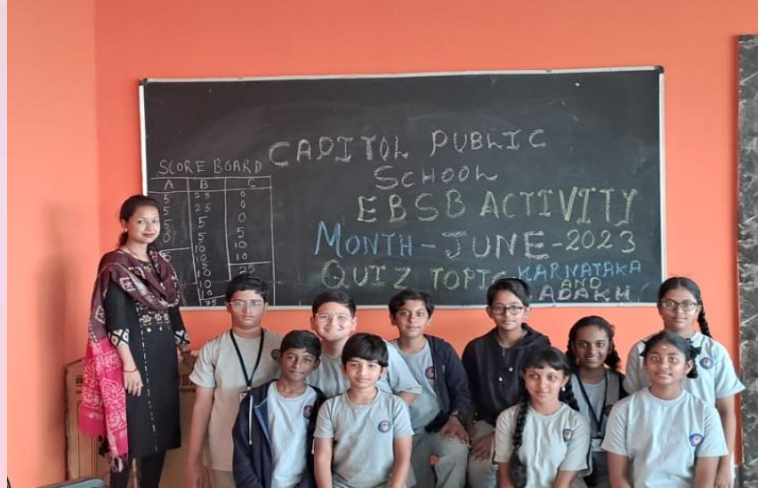 CAPITOL PUBLIC
SCHOOL
EBSB ACTIVITY
MONTH-JUNE-2023
QUIZ TOPIC KARNATAKA
AND
LADAKH
SCORE BOARD
A B C
5 25 0
5 25 0
5 5 0
0 5 10
10 10
10 10
10 25